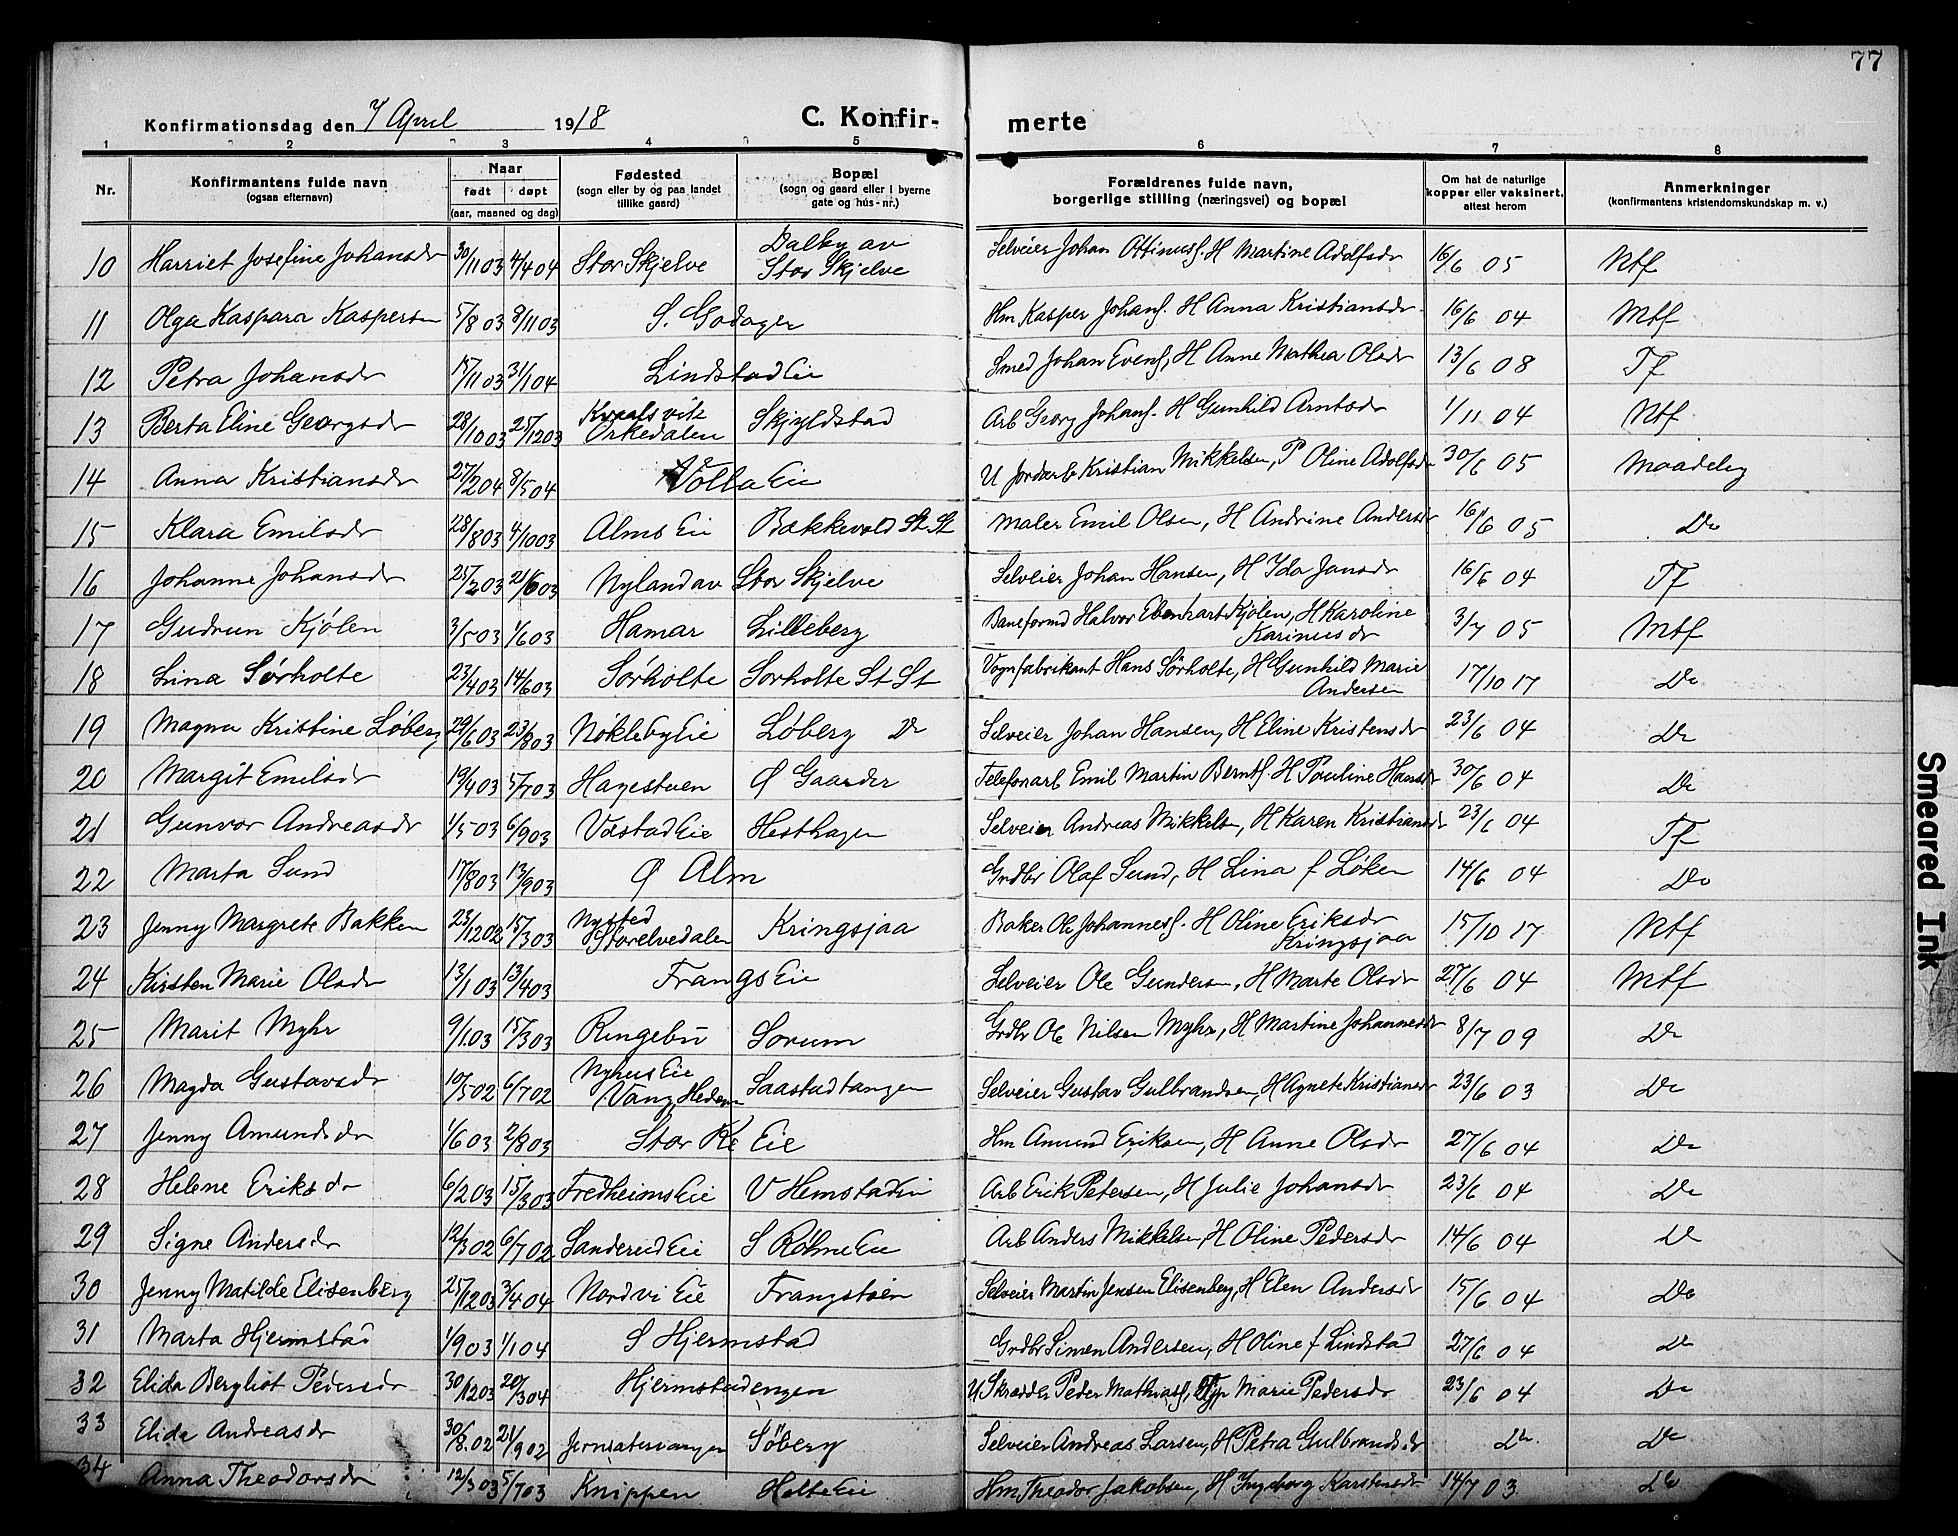 77
Konfirmationsdag den 7 April 1918 C. Konfir- merte
1 2 3 4 5 6 7 8
Nr. Konfirmantens fulde navn (ogsaa efternavn) Naar født døpt (aar, maaned og dag) Fødested (sogn eller by og paa landet tillike gaard) Bopæl (sogn og gaard eller i byerne gate og hus-nr.) Forældrenes fulde navn, borgerlige stilling (næringsvei) og bopæl Om hat de naturlige kopper eller vaksinert, attest herom Anmerkninger (konfirmantens kristendomskundskap m. v.)
10 Harriet Josefine Johansdr 30/11 03 4/4 04 Stor Skjelve Dalby av Stor Skjelve Selveier Johan Ottinuss. H Martine Adolfsdr 16/6 05 Mtf
11 Olga Kaspara Kaspersen 5/8 03 8/11 03 S. Godager Hm Kasper Johans. H Anna Kristiansdr 16/6 04 Mtf
12 Petra Johansdr 17/11 03 31/1 04 Lindstad Eie Smed Johan Evens, H Anne Mathea Olsdr 13/6 08 Tf
13 Berta Eline Georgsdr 28/10 03 25/12 03 Kvaalsvik Orkedalen Skjyldstad Arb Georg Johans. H Gunhild Arntsdr 1/11 04 Mtf
14 Anna Kristiansdr 27/2 04 8/5 04 Volla Eie U Jordarb Kristian Mikkelsen, P Oline Adolfsdr 30/6 05 Maadelig
15 Klara Emilsdr 28/8 03 4/10 03 Alms Eie Bækkevold St. St Maler Emil Olsen, H Andrine Andersdr 16/6 05 Do
16 Johanne Johansdr 25/2 03 21/6 03 Nyland av Stor Skjelve Selveier Johan Hansen, H Ida Jansdr 16/6 04 Tf
17 Gudrun Kjølen 3/5 03 1/6 03 Hamar Lilleberg Baneformd Halvor Ebenhart Kjølen, H Karoline Karinusdr 3/7 05 Mtf
18 Lina Sørholte 23/4 03 14/6 03 Sørholte Sorholte St St Vognfabrikant Hans Sørholte, H Gunhild Marie Andersen 17/10 17 Do
19 Magna Kristine Løberg 29/6 03 23/8 03 Nøkleby Eie Løberg Do Selveier Johan Hansen, H Eline Kristensdr 23/6 04 Do
20 Margit Emilsdr 19/4 03 5/7 03 Hagestuen Ø Gaarder Telefonarb Emil Martin Bernts. H Pauline Hansdr 30/6 04 Do
21 Gunvor Andreasdr 1/5 03 6/9 03 Vastad Eie Hesthagen Selveier Andreas Mikkelsn, H Karen Kristiansdr 23/6 04 Tf
22 Marta Sund 17/8 03 13/9 03 Ø Alm Grdbr Olaf Sund, H Lina f Løken 14/6 04 Do
23 Jenny Margrete Bakken 23/12 02 15/3 03 Nysted Storelvedalen Kringsjaa Baker Ole Johanness. H Oline Eriksdr Kringsjaa 15/10 17 Mtf
24 Kirsten Marie Olsdr 13/1 03 13/4 03 Frangs Eie Selveier Ole Gundersn, H Marte Olsdr 27/6 04 Mtf
25 Marit Myhr 9/1.03 15/3 03 Ringebu Sorum Grdbr Ole Nilsen Myhr, H Martine Johannesdr 8/7 09 Do
26 Magda Gustavsdr 10/5 02 6/7 02 Nyhus Eie Vang, Hedem Saastadtangen Selveier Gustav Gulbrandsen, H Agnete Kristiansdr 23/6 03 Do
27 Jenny Amundsdr 1/6 03 2/8 03 Stor Re Eie Hm Amund Eriksen, H Anne Olsdr 27/6 04 Do
28 Helene Eriksdr 6/2 03 15/3 03 Fredheims Eie V Hemstad Eie Arb Erik Petersen, H Julie Johansdr 23/6 04 Do
29 Signe Andersdr 12/3 02 6/7 02 Sandereid Eie S Røhne Eie Arb Anders Mikkelsen, H Oline Pedersdr 14/6 04 Do
30 Jenny Matilde Elisenberg 25/12 03 3/4 04 Nordvi Eie Frangstøen Selveier Martin Jensen Elisenberg, H Elen Andersdr 15/6 04 Do
31 Marta Hjermstad 1/9 03 1/1 04 S Hjermstad Grdbr Simen Andersen, H Oline f Lindstad 27/6 04 Do
32 Elida Bergliot Pedersdr 30/12 03 20/3 04 Hjermstadengen U Skrædder Peder Mathias, Marie Pedersdr 23/6 04 Do
33 Elida Andreasdr 30/8.02 21/9 02 Søberg Selveier Andreas Larsen, H Petra Gulbrandsdr Do Do
34 Anna Theodorsdr 12/3 03 5/7 03 Knippen Holte Eie Hm Theodor Jakobsen, H Ingeborg Karstensdr 14/7 03 Do
Smeared Ink